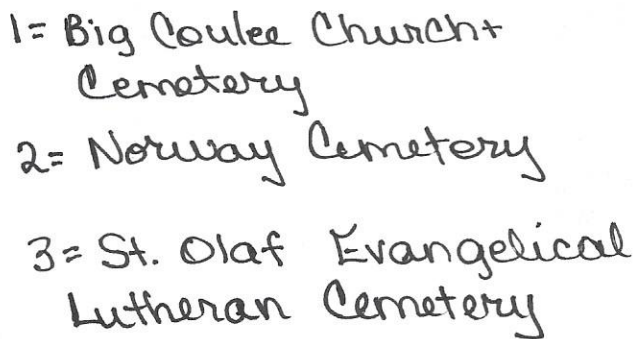 1= Big Coulee Church+
Cemetery
2= Norway Cemetery
3= St. Olaf Evangelical
Lutheran Cemetery